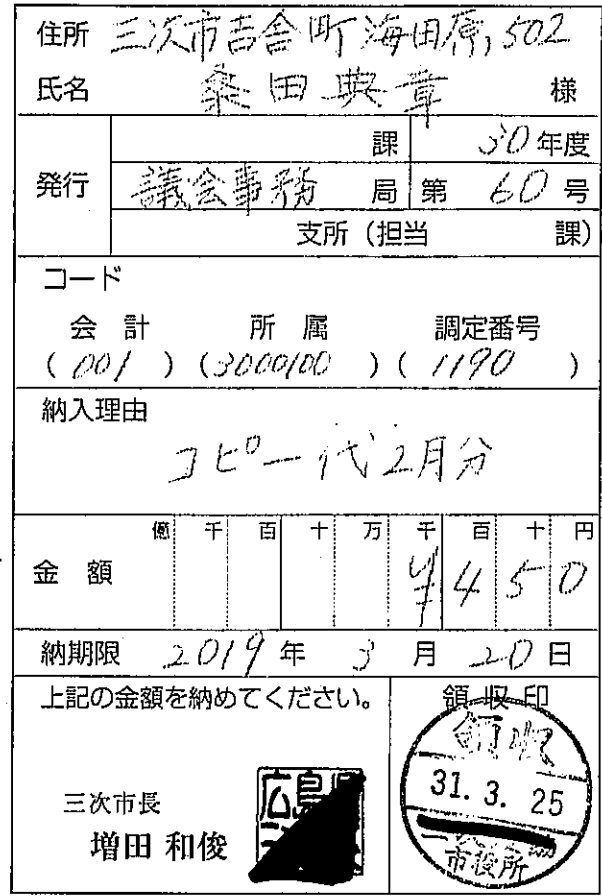 住所 三次市吉舎町海田原1502
氏名 桑田典章 様
発行
課 30年度
議会事務 局 第 60 号
支所 (担当 課)
コード
会計 所属 調定番号
( 001 ) (3000100 ) ( 1190 )
納入理由
コピー代2月分
億 千 百 十 万 千 百 十 円
金額 ¥450
納期限 2019 年 3 月 20 日
上記の金額を納めてください。
三次市長
増田 和俊
広島
領収印
領収
31. 3. 25
市役所